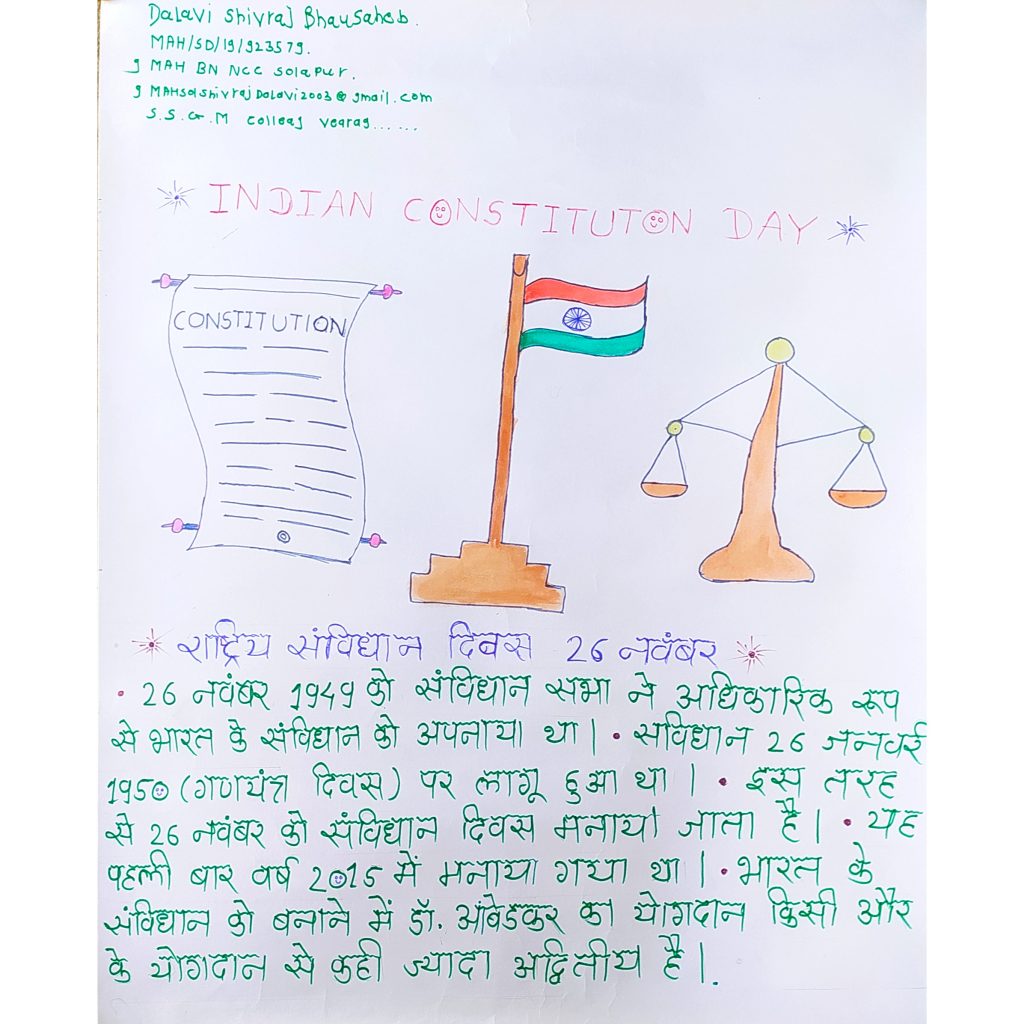 Dalavi Shivraj Bhausaheb.
MAH/SD/19/923579.
9 MAH BN NCC Solapur.
9 MAHsolshivrajDalavi2003@gmail.com
S.S.G.M colleaj vearag......
INDIAN CONSTITUTON DAY
CONSTITUTION
राष्ट्रिय संविधान दिवस 26 नवंबर
• 26 नवंबर 1949 को संविधान सभा ने अधिकारिक रूप
से भारत के संविधान को अपनाया था | • सविधान 26 जनवरई
1950 (गणयंत्र दिवस) पर लागू हुआ था | • इस तरह
से 26 नवंबर को संविधान दिवस मनाया जाता है | • यह
पहली बार वर्ष 2015 में मनाया गया था | • भारत के
संविधान को बनाने में डॉ. आंबेडकर का योगदान किसी और
के योगदान से कही ज्यादा अद्वितीय है |.